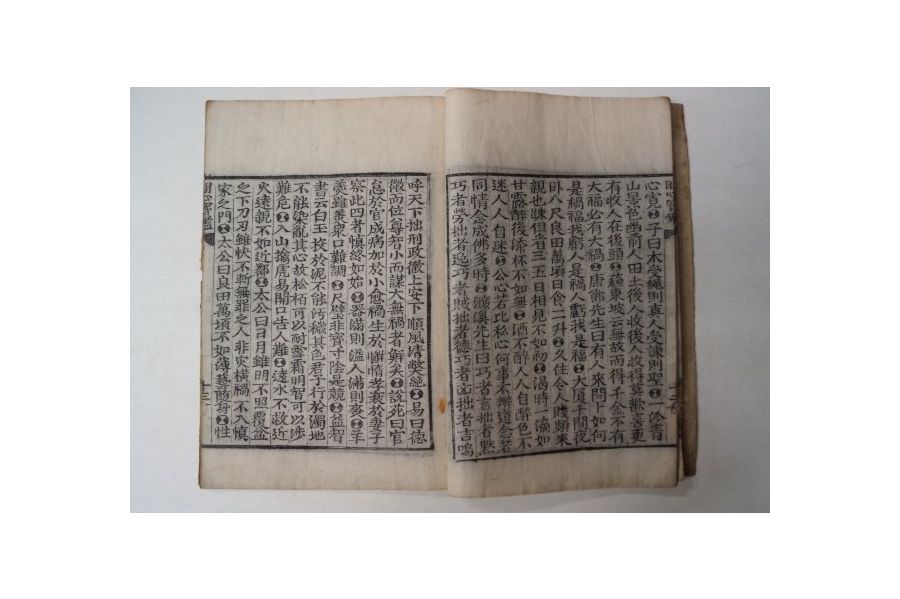 心寬子曰木受繩則直人受諫則聖一派青
山景色幽前人田土後人收後人收得莫歡喜更
有收人在後頭蘇東坡云無故而得千金不有
大福必有大禍康節先生曰有人來問卜如何
是禍福我虧人是禍人虧我是福大厦千間夜
臥八尺良田萬頃日食二升久住令人賤頻來
親也踈但看三五日相見不如初渴時一滴如
甘露醉後添杯不如無酒不醉人人自醉色不
迷人人自迷公心若比私心何事不辦道念若
同情念成佛多時濂溪先生曰巧者言拙者默
巧者勞拙者逸巧者賊拙者德巧者凶拙者吉嗚
呼天下拙刑政徹上安下順風清弊絶易曰德
微而位尊智小而謀大無禍者鮮矣說苑曰官
怠於宦成病加於小愈禍生於懈惰孝衰於妻子
察此四者慎終如始器滿則溢人滿則喪羊
羹雖美衆口難調尺璧非寶寸陰是競益智
書云白玉投於泥不能汚穢其色君子行於濁地
不能染亂其心故松柏可以耐雪霜明智可以涉
難危入山擒虎易開口告人難遠水不救近
火遠親不如近鄰太公曰日月雖明不照覆盆
之下刀刃雖快不斬無罪之人非灾橫禍不入慎
家之門太公曰良田萬頃不如薄藝隨身性
明心寶鑑
十二